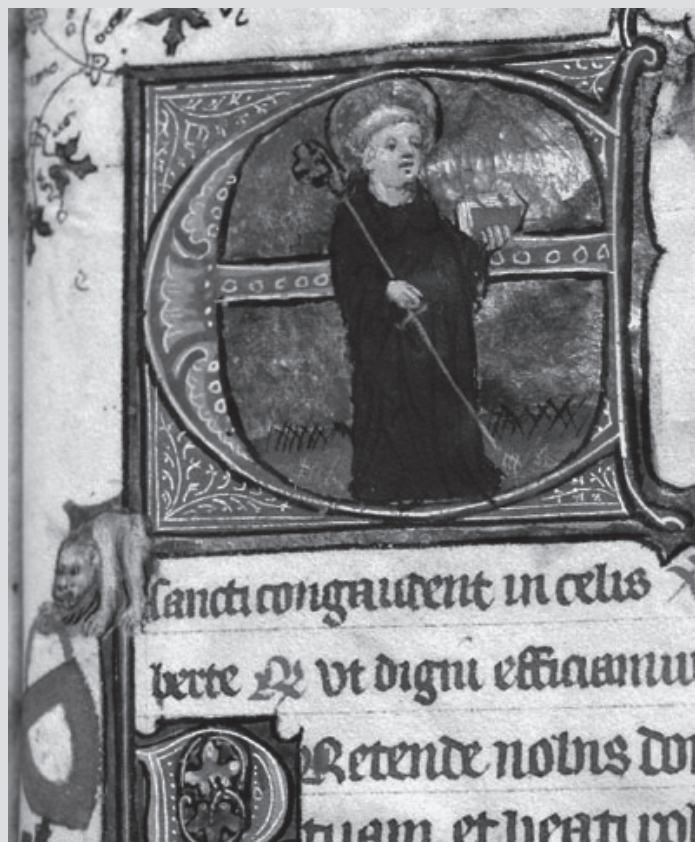 E
sancti congaudent in celis
berte Vt digni efficiamu
PRetende nobis do
tuam et beati ro